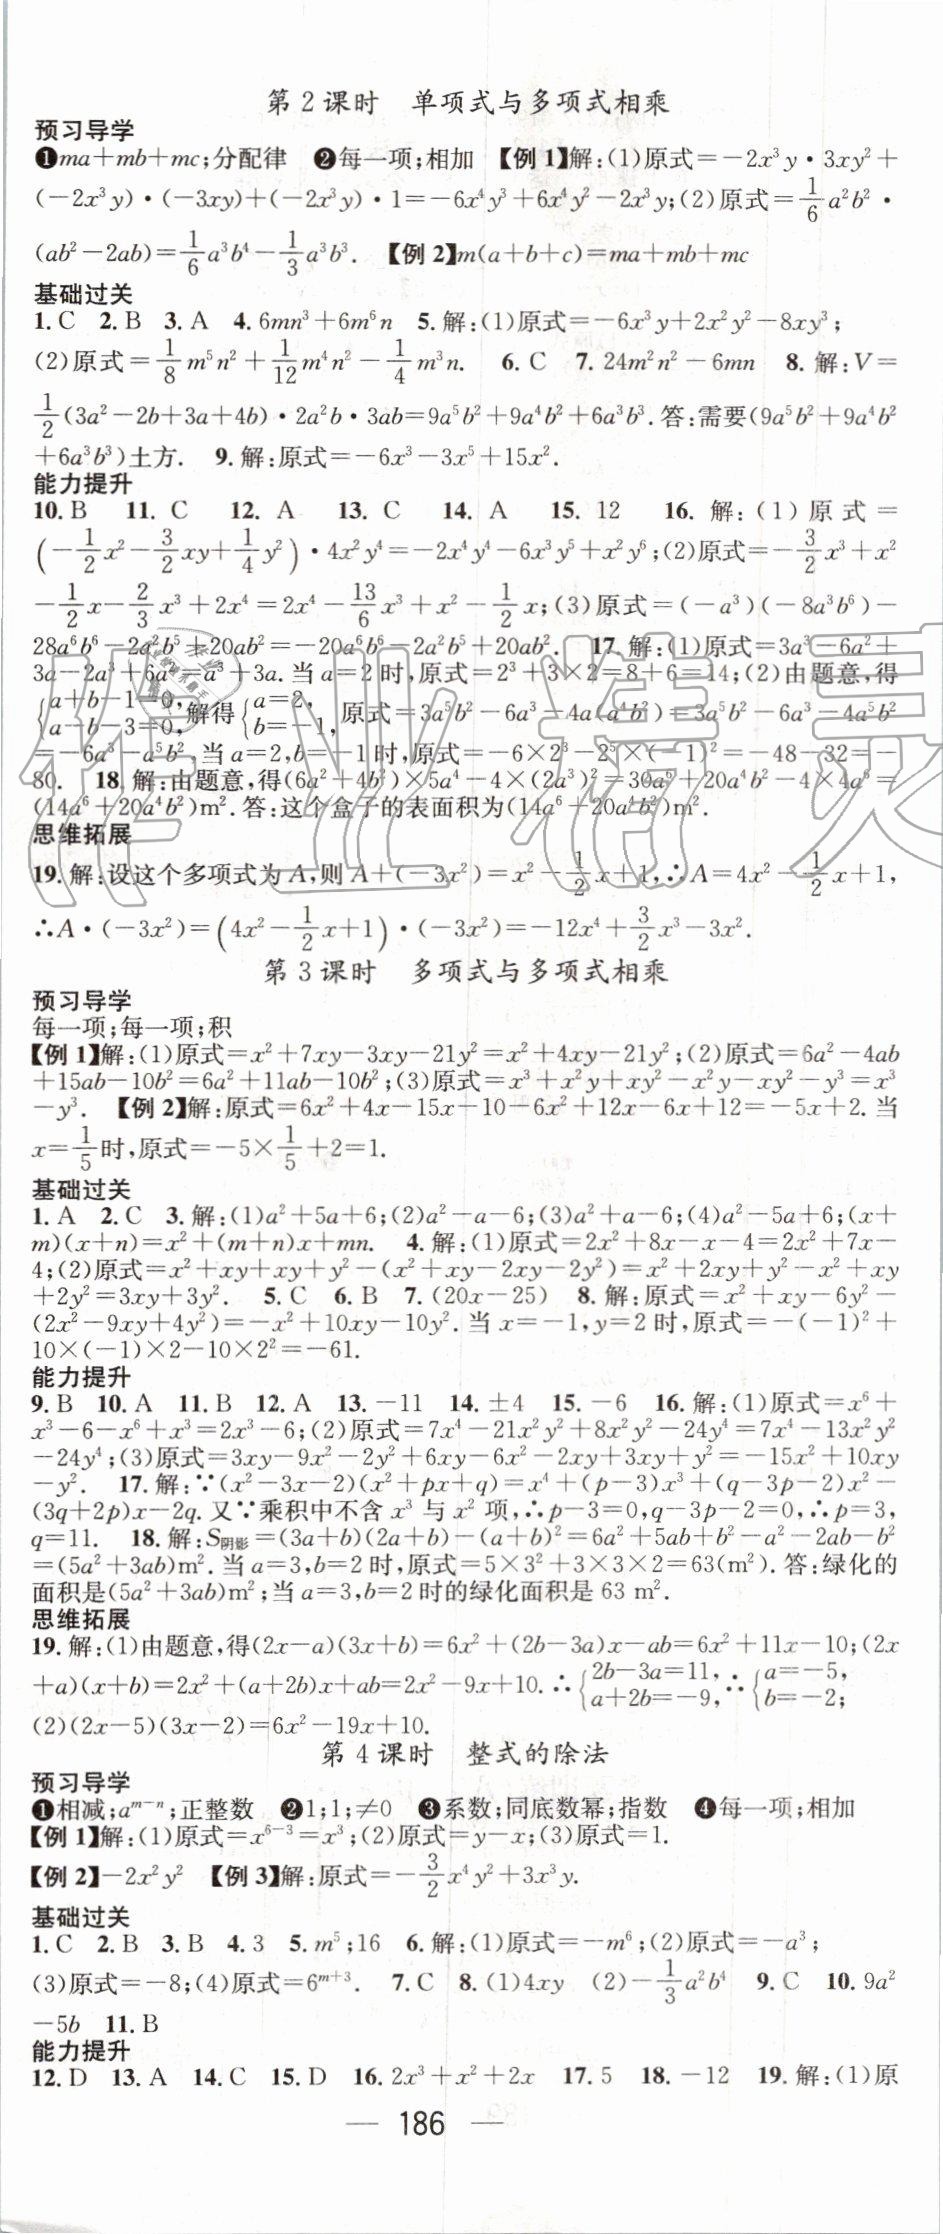 第2课时　单项式与多项式相乘
预习导学
❶ma+mb+mc;分配律　❷每一项;相加　【例1】解:(1)原式=-2x³y·3xy²+
(-2x³y)·(-3xy)+(-2x³y)·1=-6x⁴y³+6x⁴y²-2x³y;(2)原式=1/6a²b²·
(ab²-2ab)=1/6a³b⁴-1/3a³b³.　【例2】m(a+b+c)=ma+mb+mc
基础过关
1.C　2.B　3.A　4.6mn³+6m⁶n　5.解:(1)原式=-6x³y+2x²y²-8xy³;
(2)原式=1/8m⁵n²+1/12m⁴n²-1/4m³n.　6.C　7.24m²n²-6mn　8.解:V=
1/2(3a²-2b+3a+4b)·2a²b·3ab=9a⁵b²+9a⁴b²+6a³b³.答:需要(9a⁵b²+9a⁴b²
+6a³b³)土方.　9.解:原式=-6x³-3x⁵+15x².
能力提升
10.B　11.C　12.A　13.C　14.A　15.12　16.解:(1)原式=
(-1/2x²-3/2xy+1/4y²)·4x²y⁴=-2x⁴y⁴-6x³y⁵+x²y⁶;(2)原式=-3/2x³+x²
-1/2x-2/3x³+2x⁴=2x⁴-13/6x³+x²-1/2x;(3)原式=(-a³)(-8a³b⁶)-
28a⁶b⁶-2a²b⁵+20ab²=-20a⁶b⁶-2a²b⁵+20ab².　17.解:(1)原式=3a³-6a²+
3a-2a³+6a²=a³+3a.当a=2时,原式=2³+3×2=8+6=14;(2)由题意,得
{a+b-1=0,a-b-3=0,解得{a=2,b=-1,原式=3a⁵b²-6a³-4a(a⁴b²)=3a⁵b²-6a³-4a⁵b²
=-6a³-a⁵b².当a=2,b=-1时,原式=-6×2³-2⁵×(-1)²=-48-32=-
80.　18.解:由题意,得(6a²+4b²)×5a⁴-4×(2a³)²=30a⁶+20a⁴b²-4×4a⁶=
(14a⁶+20a⁴b²)m².答:这个盒子的表面积为(14a⁶+20a⁴b²)m².
思维拓展
19.解:设这个多项式为A,则A+(-3x²)=x²-1/2x+1,∴A=4x²-1/2x+1,
∴A·(-3x²)=(4x²-1/2x+1)·(-3x²)=-12x⁴+3/2x³-3x².
第3课时　多项式与多项式相乘
预习导学
每一项;每一项;积
【例1】解:(1)原式=x²+7xy-3xy-21y²=x²+4xy-21y²;(2)原式=6a²-4ab
+15ab-10b²=6a²+11ab-10b²;(3)原式=x³+x²y+xy²-x²y-xy²-y³=x³
-y³.　【例2】解:原式=6x²+4x-15x-10-6x²+12x-6x+12=-5x+2.当
x=1/5时,原式=-5×1/5+2=1.
基础过关
1.A　2.C　3.解:(1)a²+5a+6;(2)a²-a-6;(3)a²+a-6;(4)a²-5a+6;(x+
m)(x+n)=x²+(m+n)x+mn.　4.解:(1)原式=2x²+8x-x-4=2x²+7x-
4;(2)原式=x²+xy+xy+y²-(x²+xy-2xy-2y²)=x²+2xy+y²-x²+xy
+2y²=3xy+3y².　5.C　6.B　7.(20x-25)　8.解:原式=x²+xy-6y²-
(2x²-9xy+4y²)=-x²+10xy-10y².当x=-1,y=2时,原式=-(-1)²+
10×(-1)×2-10×2²=-61.
能力提升
9.B　10.A　11.B　12.A　13.-11　14.±4　15.-6　16.解:(1)原式=x⁶+
x³-6-x⁶+x³=2x³-6;(2)原式=7x⁴-21x²y²+8x²y²-24y⁴=7x⁴-13x²y²
-24y⁴;(3)原式=3xy-9x²-2y²+6xy-6x²-2xy+3xy+y²=-15x²+10xy
-y².　17.解:∵(x²-3x-2)(x²+px+q)=x⁴+(p-3)x³+(q-3p-2)x²-
(3q+2p)x-2q.又∵乘积中不含x³与x²项,∴p-3=0,q-3p-2=0,∴p=3,
q=11.　18.解:S阴影=(3a+b)(2a+b)-(a+b)²=6a²+5ab+b²-a²-2ab-b²
=(5a²+3ab)m².当a=3,b=2时,原式=5×3²+3×3×2=63(m²).答:绿化的
面积是(5a²+3ab)m²;当a=3,b=2时的绿化面积是63 m².
思维拓展
19.解:(1)由题意,得(2x-a)(3x+b)=6x²+(2b-3a)x-ab=6x²+11x-10;(2x
+a)(x+b)=2x²+(a+2b)x+ab=2x²-9x+10.∴{2b-3a=11,a+2b=-9,∴{a=-5,b=-2;
(2)(2x-5)(3x-2)=6x²-19x+10.
第4课时　整式的除法
预习导学
❶相减;aᵐ⁻ⁿ;正整数　❷1;1;≠0　❸系数;同底数幂;指数　❹每一项;相加
【例1】解:(1)原式=x⁶⁻³=x³;(2)原式=y-x;(3)原式=1.
【例2】-2x²y²　【例3】解:原式=-3/2x⁴y²+3x³y.
基础过关
1.C　2.B　3.B　4.3　5.m⁵;16　6.解:(1)原式=-m⁶;(2)原式=-a³;
(3)原式=-8;(4)原式=6ᵐ⁺³.　7.C　8.(1)4xy　(2)-1/3a²b⁴　9.C　10.9a²
-5b　11.B
能力提升
12.D　13.A　14.C　15.D　16.2x³+x²+2x　17.5　18.-12　19.解:(1)原
— 186 —
作业精灵